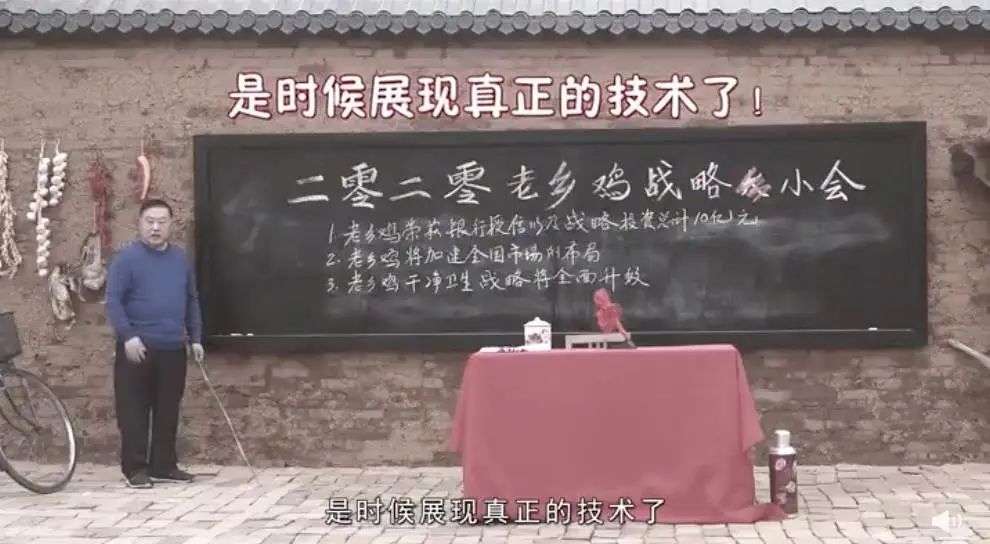 是时候展现真正的技术了！
二零二零老乡鸡战略小会
1. 老乡鸡荣获银行授信以及战略投资总计10亿元
2. 老乡鸡将加速全国市场的布局
3. 老乡鸡干净卫生战略将全面升级
是时候展现真正的技术了